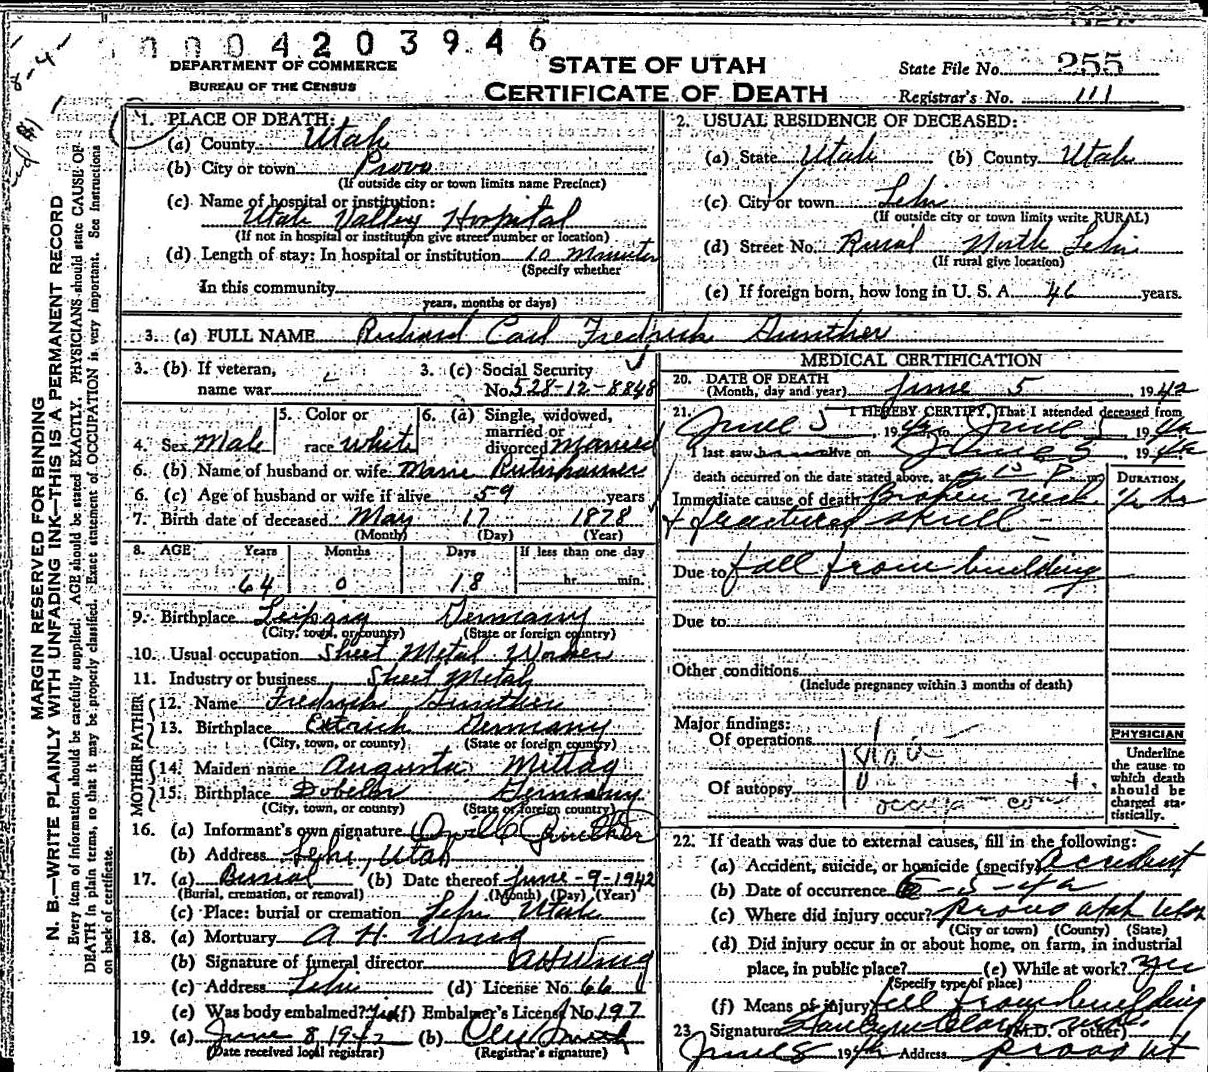 0004203946
DEPARTMENT OF COMMERCE
BUREAU OF THE CENSUS
STATE OF UTAH
CERTIFICATE OF DEATH
State File No. 255
Registrar's No. 111
8-4-
MARGIN RESERVED FOR BINDING
N. B.—WRITE PLAINLY WITH UNFADING INK—THIS IS A PERMANENT RECORD
Every item of information should be carefully supplied. AGE should be stated EXACTLY. PHYSICIANS should state CAUSE OF
DEATH in plain terms, so that it may be properly classified. Exact statement of OCCUPATION is very important. See instructions
on back of certificate.
1. PLACE OF DEATH:
(a) County Utah
(b) City or town Provo
(If outside city or town limits name Precinct)
(c) Name of hospital or institution:
Utah Valley Hospital
(If not in hospital or institution give street number or location)
(d) Length of stay: In hospital or institution 10 Minutes
(Specify whether
In this community
years, months or days)
2. USUAL RESIDENCE OF DECEASED:
(a) State Utah (b) County Utah
(c) City or town Lehi
(If outside city or town limits write RURAL)
(d) Street No. Rural North Lehi
(If rural give location)
(e) If foreign born, how long in U. S. A. 46 years.
3. (a) FULL NAME Richard Carl Fredrick Gunther
3. (b) If veteran,
name war
3. (c) Social Security
No. 528-12-8848
4. Sex Male
5. Color or
race white
6. (a) Single, widowed,
married or
divorced Married
6. (b) Name of husband or wife Marie
6. (c) Age of husband or wife if alive 59 years
7. Birth date of deceased May 17 1878
(Month) (Day) (Year)
8. AGE Years Months Days If less than one day
64 0 18 hr. min.
9. Birthplace Leipzig Germany
(City, town, or county) (State or foreign country)
10. Usual occupation Sheet Metal Worker
11. Industry or business Sheet Metal
FATHER
12. Name Fredrick Gunther
13. Birthplace Germany
(City, town, or county) (State or foreign country)
MOTHER
14. Maiden name Augusta Mittag
15. Birthplace Dobeln Germany
(City, town, or county) (State or foreign country)
16. (a) Informant's own signature Gunther
(b) Address Lehi, Utah
17. (a) Burial (b) Date thereof June-9-1942
(Burial, cremation, or removal) (Month) (Day) (Year)
(c) Place: burial or cremation Lehi Utah
18. (a) Mortuary A H Wing
(b) Signature of funeral director AHWing
(c) Address Lehi (d) License No. 66
(e) Was body embalmed? Yes (f) Embalmer's License No. 197
19. (a) June 8 1942 (b) Smith
(Date received local registrar) (Registrar's signature)
MEDICAL CERTIFICATION
20. DATE OF DEATH
(Month, day and year) June 5 1942
21. I HEREBY CERTIFY, That I attended deceased from
June 5, 1942 to June 5, 1942
I last saw him alive on June 5 1942
death occurred on the date stated above, at P m
DURATION
Immediate cause of death Broken neck ½ hr
+ fractured skull
Due to fall from building
Due to
Other conditions
(Include pregnancy within 3 months of death)
Major findings:
Of operations
Of autopsy
PHYSICIAN
Underline
the cause to
which death
should be
charged sta-
tistically.
22. If death was due to external causes, fill in the following:
(a) Accident, suicide, or homicide (specify) Accident
(b) Date of occurrence 6-5-42
(c) Where did injury occur? Provo Utah Utah
(City or town) (County) (State)
(d) Did injury occur in or about home, on farm, in industrial
place, in public place? (e) While at work? yes
(Specify type of place)
(f) Means of injury fall from building
23. Signature Clark (M.D. or other)
June 8 1942 Address Provo Ut